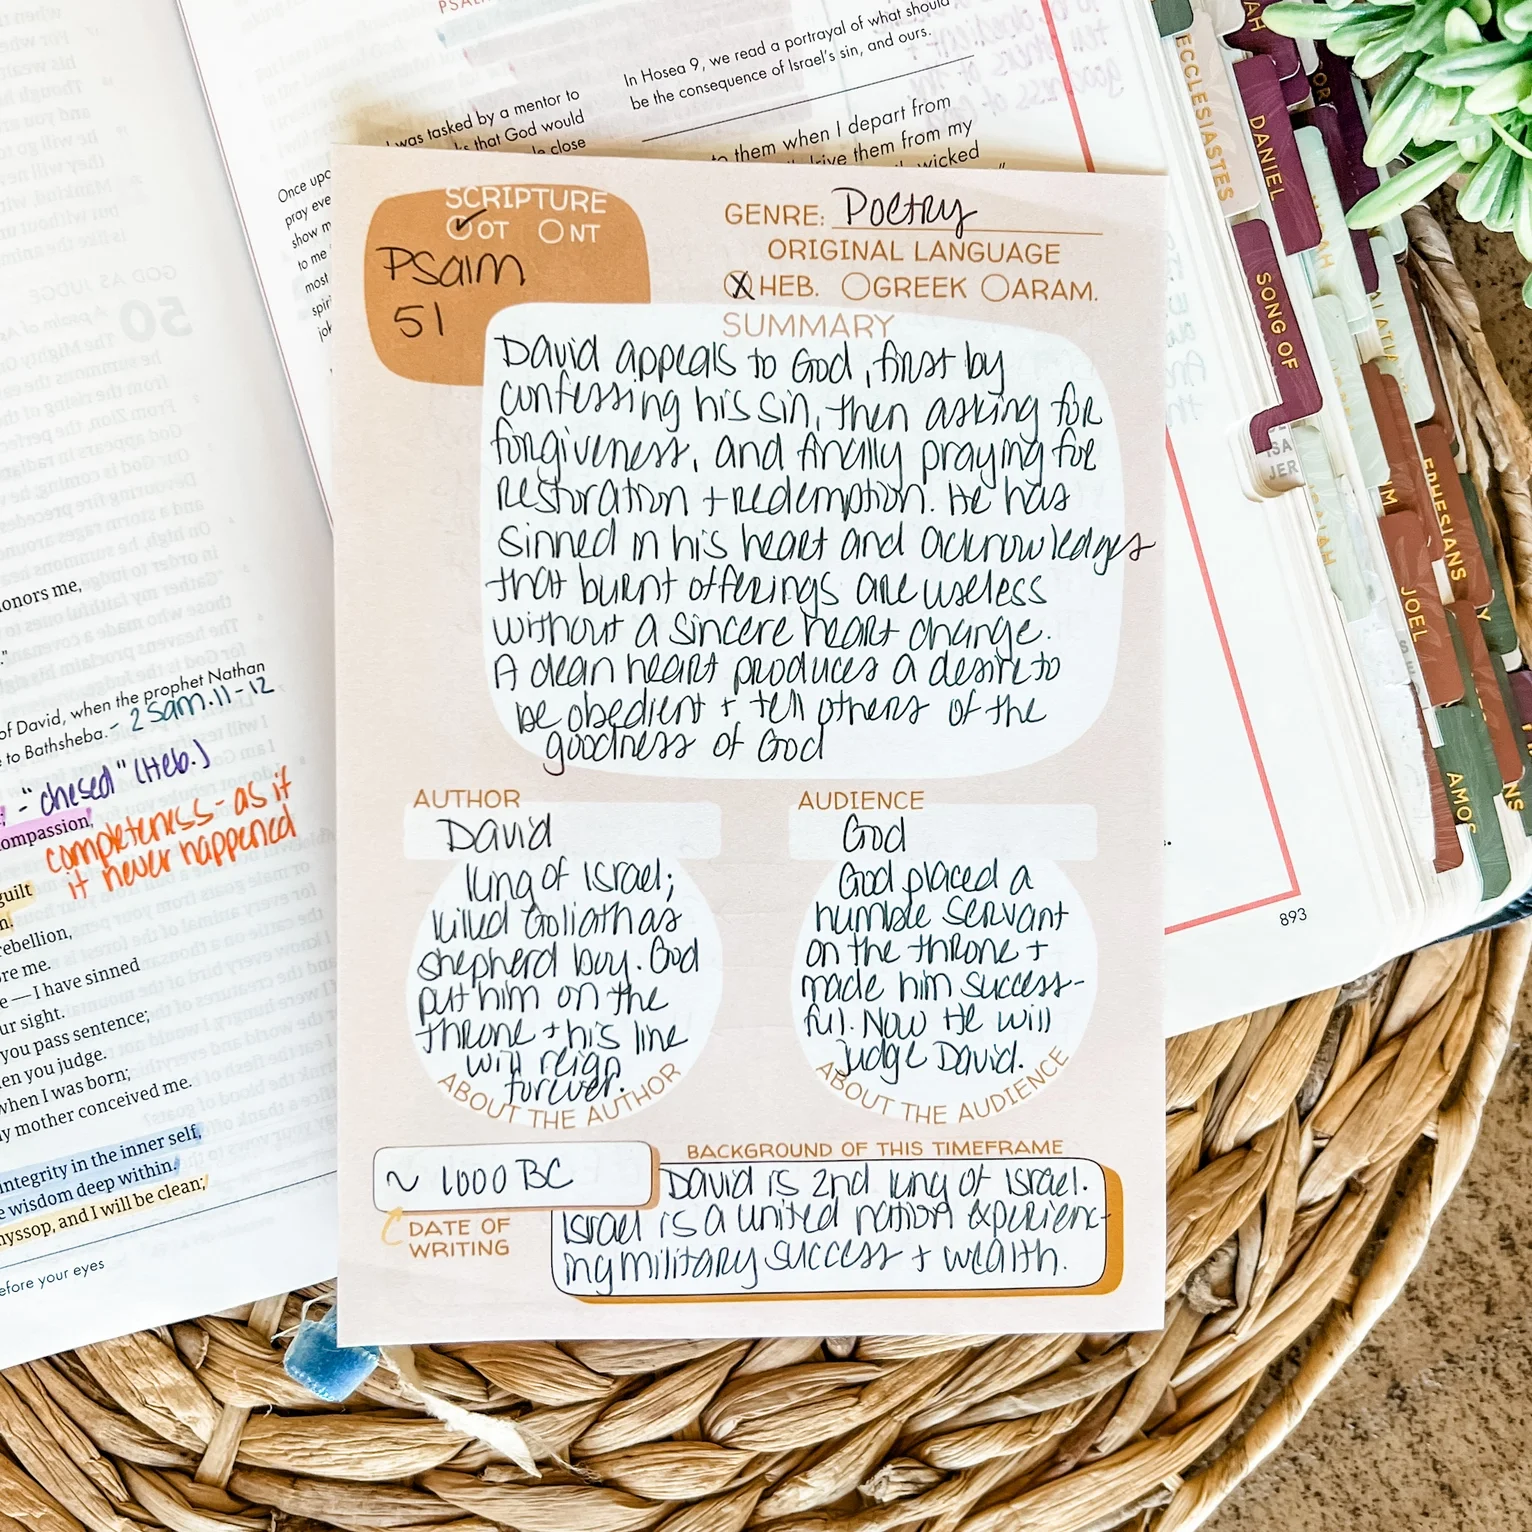 In Hosea 9, we read a portrayal of what should
be the consequence of Israel's sin, and ours.
was tasked by a mentor to
that God would
close
them when I depart from
drive them from my
wicked
Once
pray
show
to me
most
SCRIPTURE
OT NT
Psalm
51
GENRE: Poetry
ORIGINAL LANGUAGE
HEB. GREEK ARAM.
SUMMARY
David appeals to God, first by
confessing his sin, then asking for
forgiveness, and finally praying for
restoration + redemption. He has
sinned in his heart and acknowledges
that burnt offerings are useless
without a sincere heart change.
A clean heart produces a desire to
be obedient + tell others of the
goodness of God
AUTHOR
David
king of Israel;
killed Goliath as
shepherd boy. God
put him on the
throne + his line
will reign
forever.
ABOUT THE AUTHOR
AUDIENCE
God
God placed a
humble servant
on the throne +
made him success-
ful. Now He will
judge David.
ABOUT THE AUDIENCE
~ 1000 BC
DATE OF
WRITING
BACKGROUND OF THIS TIMEFRAME
David is 2nd king of Israel.
Israel is a united nation experienc-
ing military success + wealth.
onors me,
of David, when the prophet Nathan
to Bathsheba. - 2 Sam. 11-12
- "chesed" (Heb.)
ompassion,
completeness - as if
it never happened
guilt
rebellion,
re me.
— I have sinned
ur sight.
you pass sentence;
en you judge.
when I was born;
y mother conceived me.
integrity in the inner self,
wisdom deep within.
hyssop, and I will be clean;
efore your eyes
ECCLESIASTES
DANIEL
SONG OF
ISA
JER
EPHESIANS
JOEL
AMOS
893